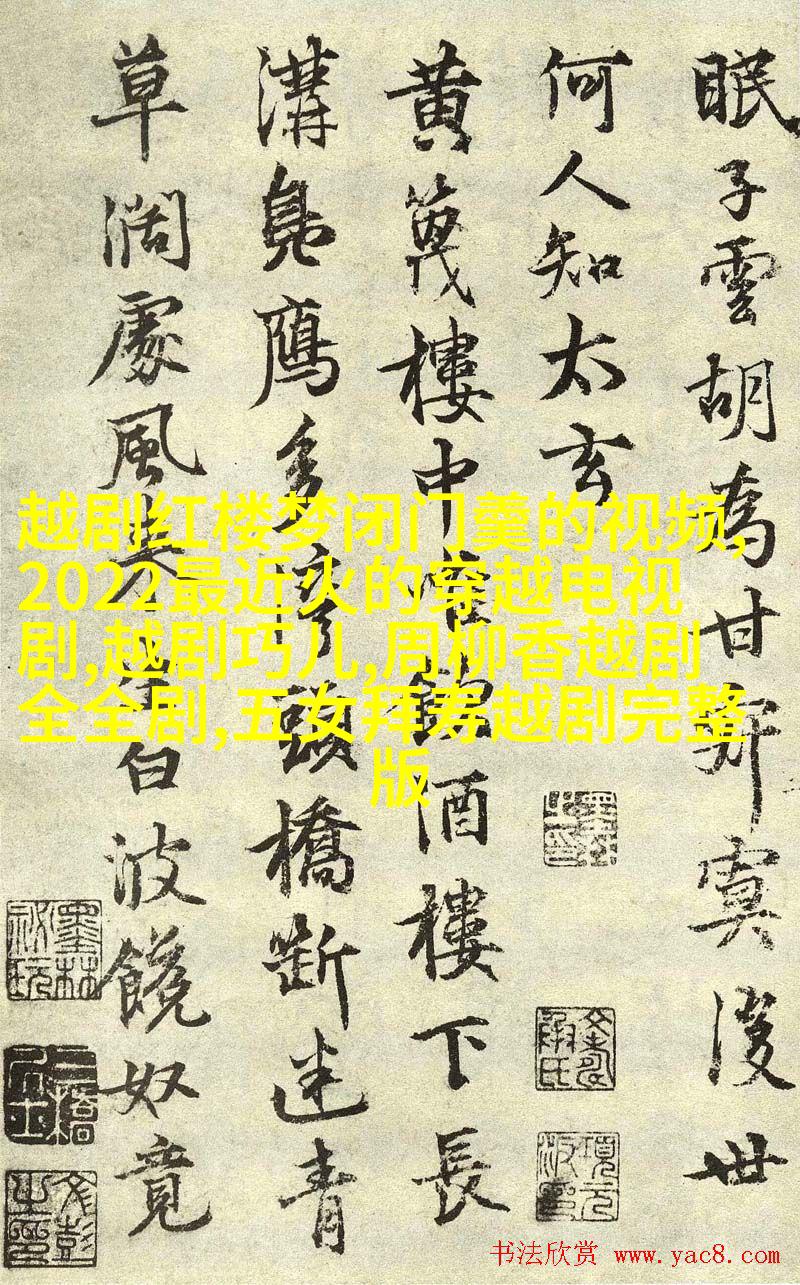 眠子雲胡為甘寂寞後世
何人知太玄
黄篾樓中
酒樓下長
溝鳧鷹多
頭橋斷迷青
草濶處風
白波饒奴竟
越剧红楼梦闭门羹的视频,
2022最近火的穿越电视
剧,越剧巧儿,周柳香越剧
全全剧,五女拜寿越剧完整
版
书法欣赏 www.yac8.com